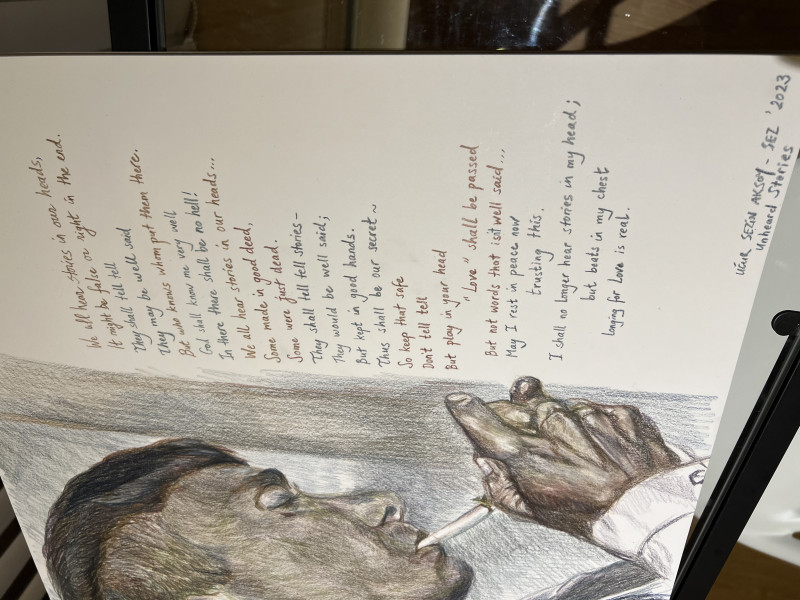 We all hear stories in our heads,
It might be false or right in the end.
They shall tell tell
They may be well said
But who knows whom put them there.
God shall know me very well
In there there shall be no hell!
We all hear stories in our heads...
Some made in good deed,
Some were just dead.
They shall tell tell stories-
They would be well said;
But kept in good hands.
Thus shall be our secret ~
So keep that safe
Don't tell tell
But play in your head
"Love" shall be passed
But not words that isn't well said...
May I rest in peace now
trusting this.
I shall no longer hear stories in my head;
but beats in my chest
longing for Love is real.
UĞUR SEZİN AKSOY - SEZ '2023
Unheard Stories